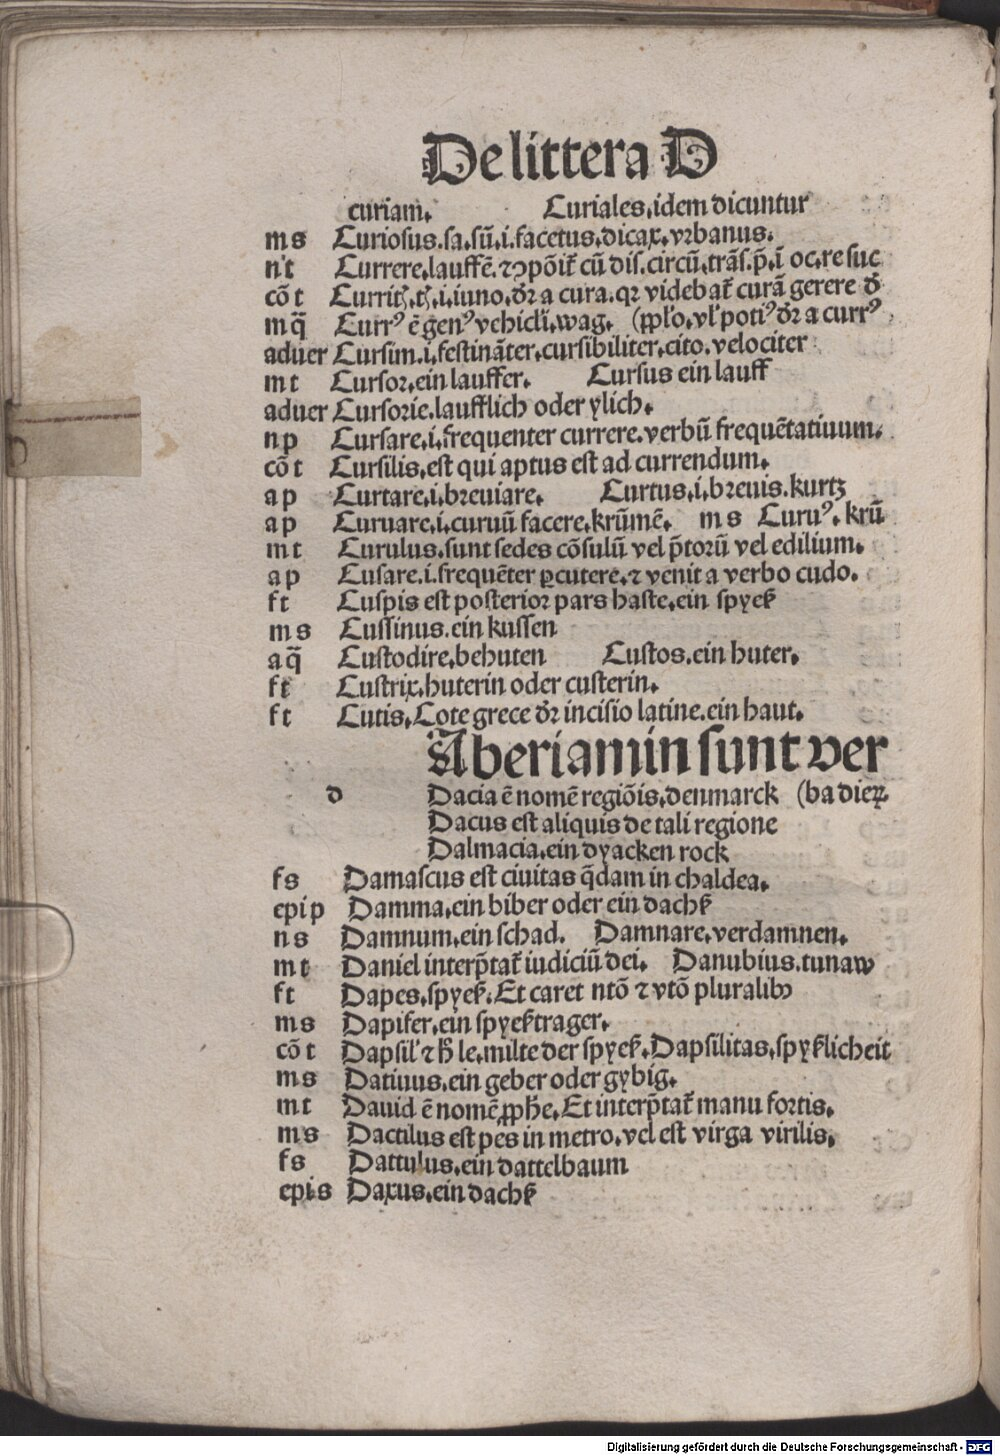 De littera D
curiam. Curiales.idem dicuntur
m s Curiosus.sa.sũ.i.facetus.dicax.vrbanus.
n t Currere.lauffẽ.⁊ ꝯpõit᷑ cũ dis.circũ.trãs.p̃.ĩ oc.re suc
cõ t Currit᷑.i.iuno.dr̃ a cura.qꝛ videbat᷑ curã gerere
m q̃ Currꝰ ẽ genꝰ vehicl'i.wag. (ꝓpl'o.vl' potiꝰ dr̃ a currꝰ
aduer Cursim.i.festinãter.cursibiliter.cito.velociter
m t Cursoꝛ.ein lauffer. Cursus ein lauff
aduer Cursorie.laufflich oder ylich.
n p Cursare.i.frequenter currere.verbũ frequẽtatiuum.
cõ t Cursilis.est qui aptus est ad currendum.
a p Curtare.i.bꝛeuiare. Curtus.i.bꝛeuis.kurtz
a p Curuare.i.curuũ facere.krũmẽ. m s Curuꝰ.krũ
m t Curulus.sunt sedes cõsulũ vel p̃torũ vel edilium.
a p Cusare.i.frequẽter ꝑcutere.⁊ venit a verbo cudo.
f t Cuspis est posterioꝛ pars haste.ein spyeß
m s Cussinus.ein kussen
a q̃ Custodire.behuten Custos.ein huter.
f t Custrix.huterin oder custerin.
f t Cutis.Cote grece dr̃ incisio latine.ein haut.
Aberiamin sunt ver
d Dacia ẽ nomẽ regiõis.denmarck (ba dieꝝ.
Dacus est aliquis de tali regione
Dalmacia.ein dyacken rock
f s Damascus est ciuitas q̃dam in chaldea.
epi p Damma.ein biber oder ein dachß
n s Damnum.ein schad. Damnare.verdamnen.
m t Daniel interp̃tat᷑ iudiciũ dei. Danubius.tunaw
f t Dapes.spyeß.Et caret ntõ ⁊ vtõ pluralibꝫ
m s Dapifer.ein spyeßtrager.
cõ t Dapsil' ⁊ h̃ le.milte der spyeß.Dapsilitas.spyßlicheit
m s Datiuus.ein geber oder gybig.
m t Dauid ẽ nomẽ ꝓph̃e.Et interp̃tat᷑ manu fortis.
m s Dactilus est pes in metro.vel est virga virilis.
f s Dattulus.ein dattelbaum
epi s Daxus.ein dachß
Digitalisierung gefördert durch die Deutsche Forschungsgemeinschaft - DFG